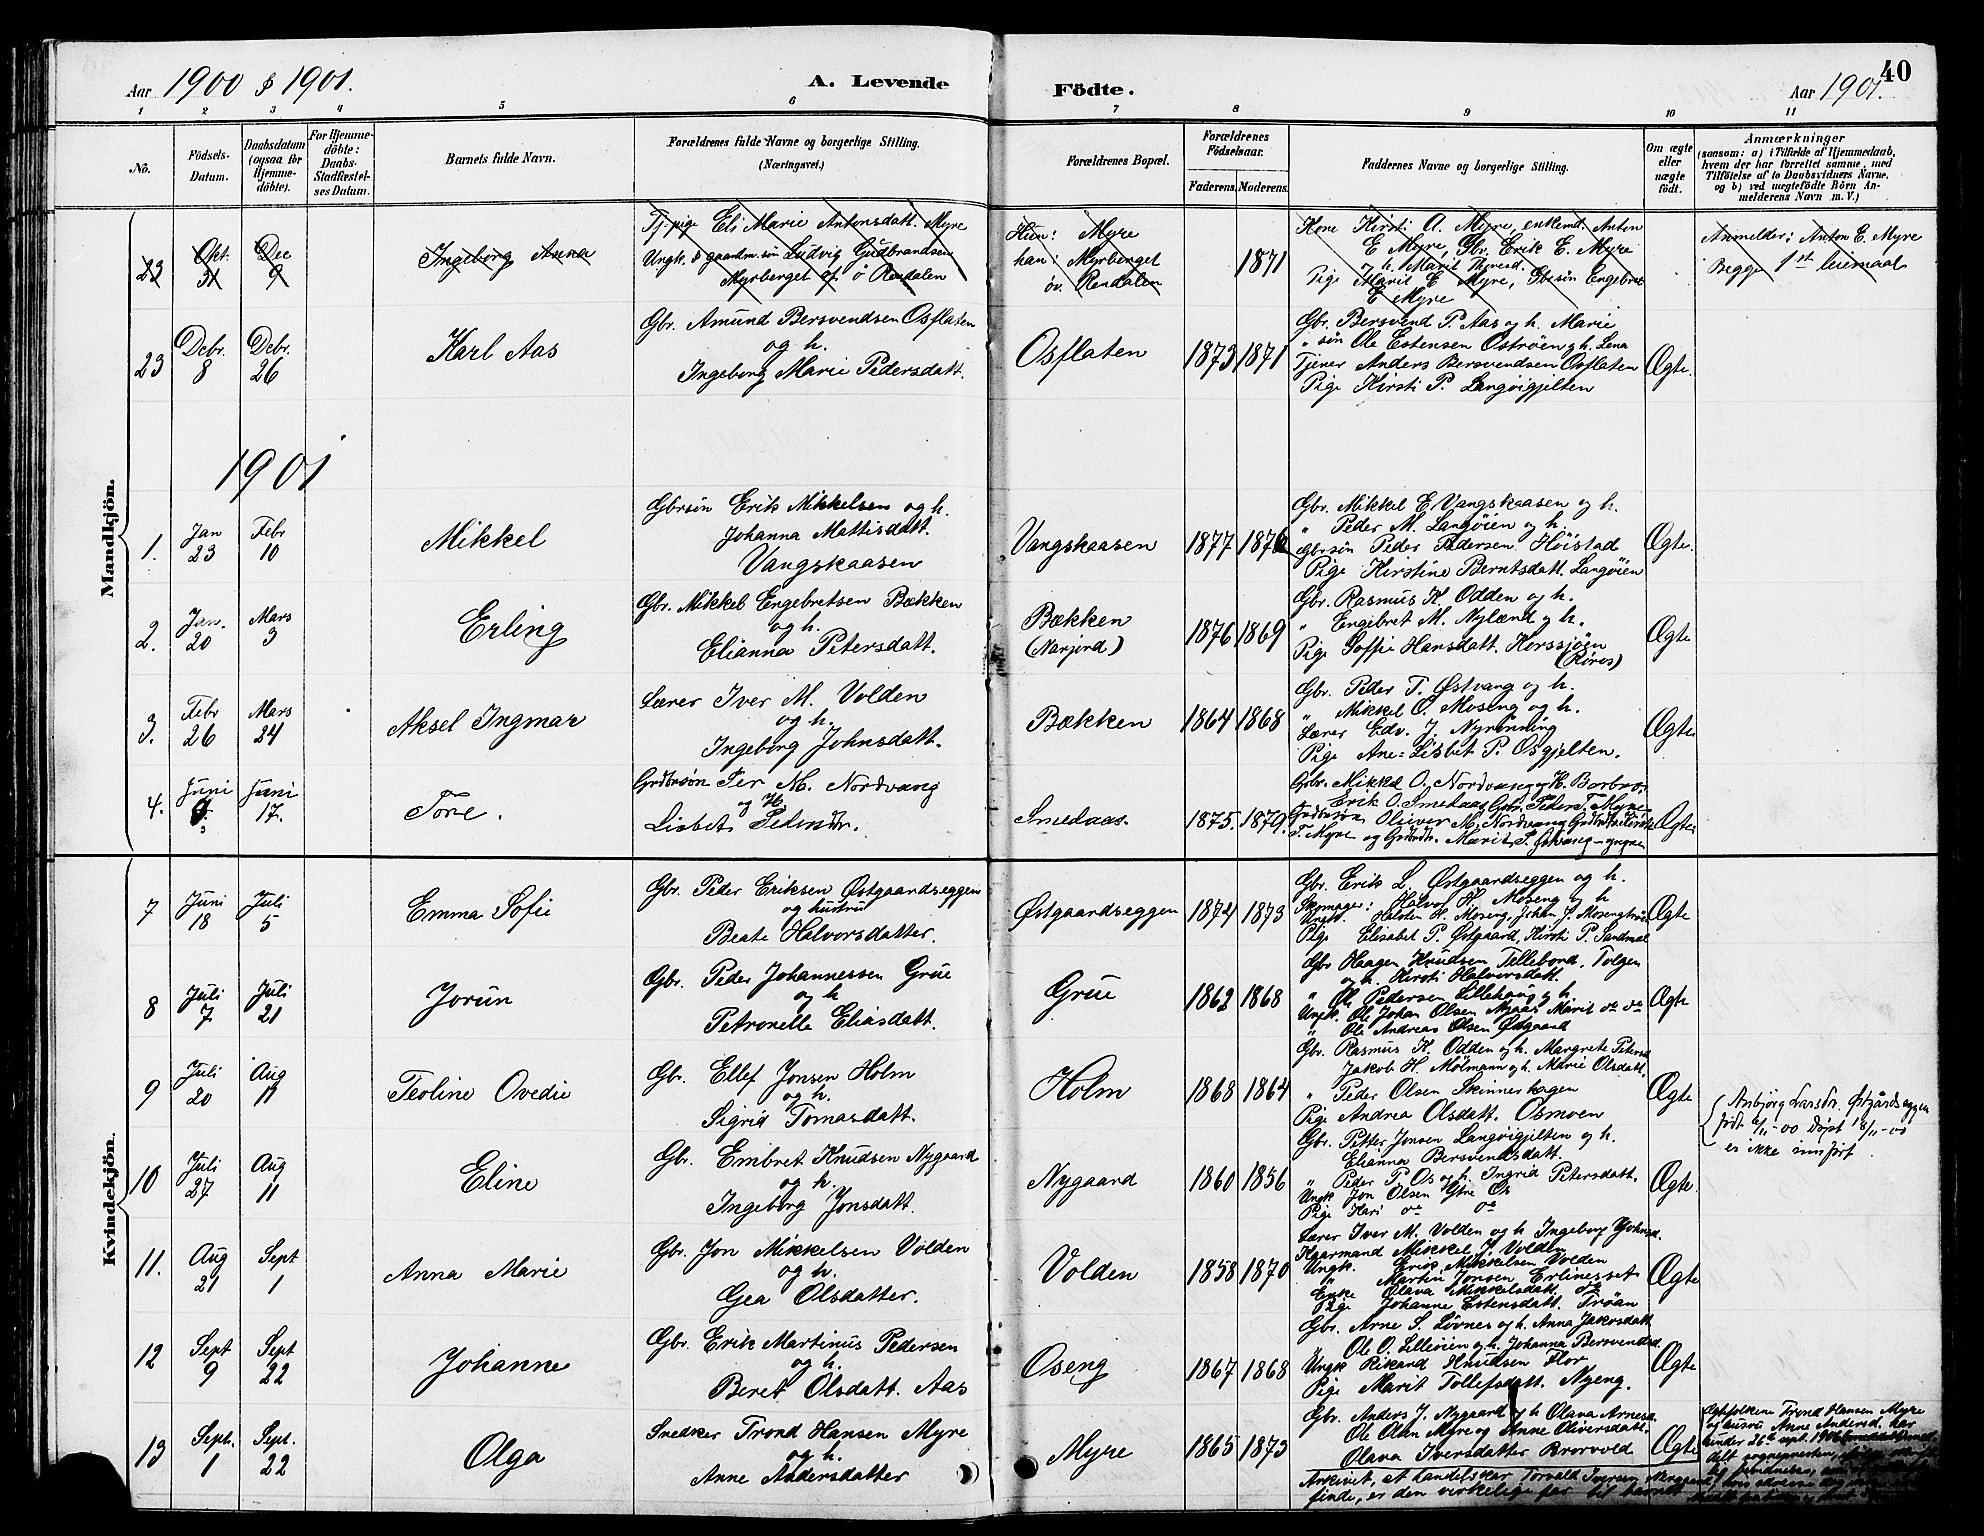 Aar 1900 & 1901.
A. Levende
Födte.
Aar 1901.
40
1 2 3 4 5 6 7 8 9 10 11
No.
Födsels-
Datum.
Daabsdatum
(ogsaa for
Hjemme-
döbte).
For Hjemme-
döbte:
Daabs-
Stadfæstel-
ses Datum.
Barnets fulde Navn.
Forældrenes fulde Navne og borgerlige Stilling.
(Næringsvei.)
Forældrenes Bopæl.
Forældrenes
Födselsaar.
Faderens. Moderens.
Faddernes Navne og borgerlige Stilling.
Om ægte
eller
uægte
födt.
Anmærkninger
(saasom: a) i Tilfælde af Hjemmedaab,
hvem der har forrettet samme, med
Tilföielse af to Daabsvidners Navne.
og b) ved uægtefödte Börn An-
melderens Navn m. V.)
Mandkjön.
23
Okt.
31
Dec
9
Ingeborg Asena
Tj. pige Eli Marie Antonsdatt. Myre
Ungk. & gaardm. søn Ludvig Gudbrandsen
Myrberget af ö Rendalen
Hun: Myre
han: Myrberget
öv. Rendalen
1871
Kone Kirsti A. Myre, enkemd. Anton
E Myre, Gbr. Erik E. Myre
Pige Marit E Myre, Gbesøn Engebret
E Myre
Anmelder: Anton E. Myre
Begge 1st leiemaal
23
Debr.
8
Debr.
26
Karl Aas
Gbr. Amund Bersvendsen Osflaten
og h.
Ingeborg Marie Pedersdatt.
Osflaten
1873 1871
Gbr. Bersvend P. Aas og h. Marie
" søn Ole Estensen Oströen g h. Lena
Tjener Anders Bersvendsen Osflaten
Pige Kirsti P. Langöigjelten
Ægte.
1901
1.
Jan
23
Febr
10
Mikkel
Gbrsön Erik Mikkelsen og h.
Johanna Mattisdatt.
Vangskaasen
Vangskaasen
1877 1876
Gbr. Mikkel E Vangskaasen og h.
" Peder M. Langöien og h.
Gbrsön Peder Pedersen Höistad
Pige Kirstine Berntsdatt. Langöien
Ægte.
2.
Jan.
20
Mars
3
Erling
Gbr. Mikkel Engebretsen Bækken
og h.
Elianna Petersdatt.
Bækken
(Narjord)
1876 1869
Gbr. Rasmus K. Odden og h.
" Engebret M. Nylænd g h.
Pige Goffie Hansdatt. Korssjöen
(Röros)
Ægte
3.
Febr
26
Mars
24
Aksel Ingmar
Lærer Iver M. Volden
og h.
Ingeborg Johnsdatt.
Bækken
1864 1868
Gbr. Peder T. Østvang og h.
" Mikkel O. Moseng og h.
Lærer Edv. J. Nyrönning
Pige Ane-Lisbet P. Osgjelten.
Ægte
4.
Juni
Juni
17.
Tore.
Grdbrsön Per M. Nordvang
og H.
Lisbet Pedersdr.
Smedaas.
1875. 1879.
Grbr. Mikkel O. Nordvang og H. Barbro,
Erik O. Smedaas, Gbr. Peder T. Myre
Grdbrsön Oliver M. Nordvang
T. Myre og Grdbrdtr. Marit P. Østvang - yngre
Ægte
Kvindekjön.
7
Juni
18
Juli
5
Emma Sofie
Gbr. Peder Eriksen Østgaardseggen
og hustru
Beate Halvorsdatter.
Østgaardseggen
1874 1873
Gbr. Erik L. Østgaardseggen og h.
Skomager: Halvor H. Moseng og h
Ungk. Halsten H. Moseng, Johan J. Mosengtrøa
Pige Elisabet P. Østgaard, Kirsti P. Sandmæl
Ægte
8
Juli
7
Juli
21
Jorun
Gbr. Peder Johannessen Grue
og h
Petronelle Eliasdatt.
Grue
1862 1868
Gbr Haagen Knudsen Tellebord, Tolgen
og h. Kirsti Halvorsdatt.
" Ole Pedersen Lillehaug g h
Ungk. Ole Johan Olsen Nyaas Marit do do
" Ole Andreas Olsen Østgaard
Ægte
9
Juli
20
Aug
11
Teoline Ovedie
Gbr. Ellef Jonsen Holm
og h.
Sigrid Tomasdatt.
Holm
1868 1864
Gbr. Rasmus K. Odden og h. Margrete Petersd
Jakob H. Mölmann og h. Marie Olsdatt.
" Peder Olsen Skinnerhagen
Pige Andrea Olsdatt. Osmoen
Ægte
Anbjörg Larsdr. Østgårdseggen
født 4/11-00 Døpt 18/11-00
er ikke innført
10
Juli
27
Aug
11
Eline
Gbr. Embret Knudsen Nygaard
og h.
Ingeborg Jonsdatt.
Nygaard
1860 1856
Gbr. Petter Jonsen Langöigjelten og h.
Elianna Bersvendsdatt.
" Peder P. Os og h. Ingrid Petersdatt.
Ungk Jon Olsen Ytre Os
Pige Kari do do
Ægte
11.
Aug
21
Sept
1
Anna Marie
Gbr. Jon Mikkelsen Volden
og h.
Gea Olsdatter.
Volden
1858 1870
Lærer Iver M. Volden og h Ingeborg Johnsd.
Kaarmand Mikkel J. Volden
Ungk. Erik Mikkelsen Volden
" Martin Jonsen Erlinesset
Enke Olava Mikkelsdatt. do
Pige Johanne Estensdatt. Tröan
Ægte
12
Sept
9
Sept
22
Johanne
Gbr. Erik Martinus Pedersen
og h.
Beret Olsdatt. Aas
Oseng
1867 1868
Gbr. Arne S. Lövnes og h. Anna Jakobsdatt
" Ole O. Lilleöien g h. Johanna Bersvendsd.
Ungk Rikard Knudsen Flor
Pige Marit Tollefsdatt. Nyeng.
Ægte
13
Sept.
1
Sept.
22
Olga
Snedker Trond Hansen Myre
og h.
Anne Andersdatter
Myre
1865 1873
Gbr. Anders J. Nygaard g h Olava Arnesd.
Ole Olsen Myre og Anne Oliversdatt.
Olava Iversdatter Brorvold
Ægte
Ægtefolkene Trond Hansen Myre
og hustru Anne Andersd. har
under 26de sept. 1906
delt sognepresten,
Arkivet, at handelskar Torvald Iversen Nergaard,
finde, er den virkelige far til barnet